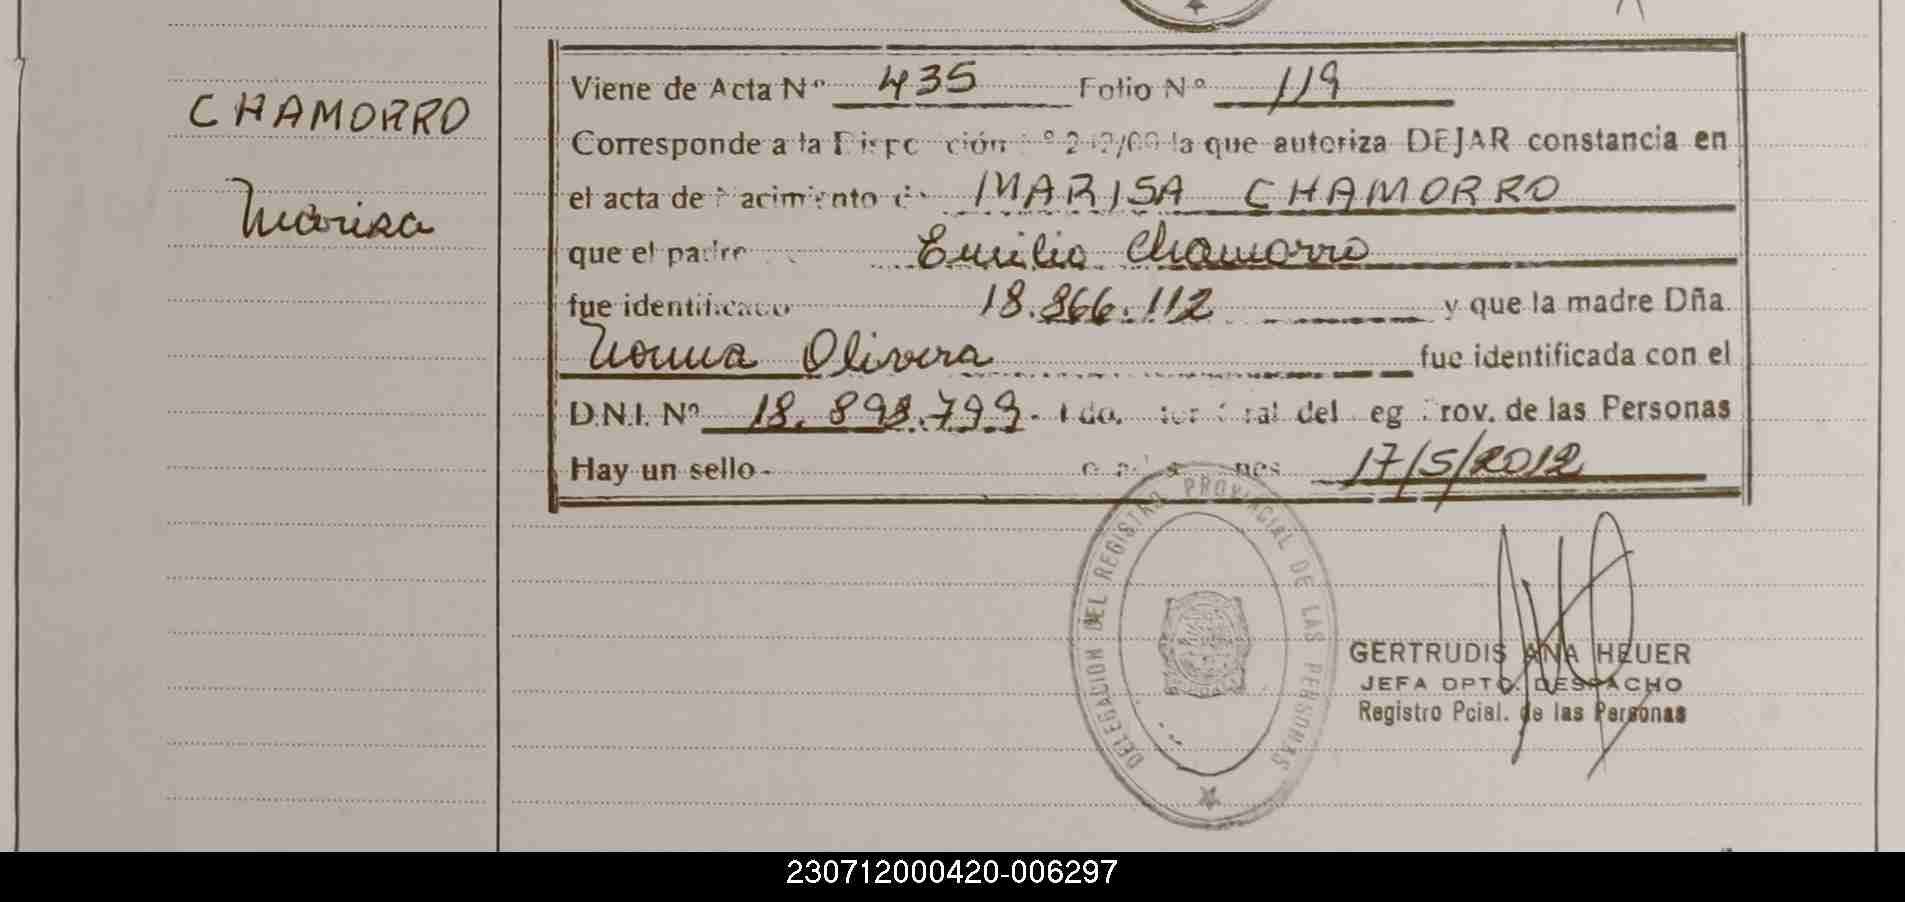 CHAMORRO
Marisa
Viene de Acta Nº 435 Folio Nº 119
Corresponde a la la que autoriza DEJAR constancia en
el acta de MARISA CHAMORRO
que el padre Emilio Chamorro
fue identificado 18.866.112 y que la madre Dña.
Norma Olivera fue identificada con el
D.N.I. Nº 18.898.799. del de las Personas
Hay un sello- 17/5/2012
DELEGACION DEL REGISTRO PROVINCIAL DE LAS PERSONAS
GERTRUDIS ANA HEUER
JEFA DPTO. DESPACHO
Registro Pcial. de las Personas
230712000420-006297